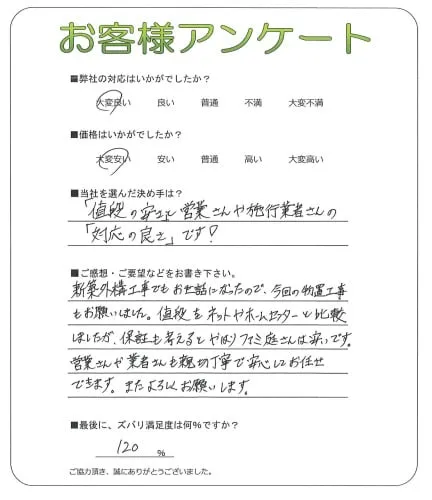 お客様アンケート
■弊社の対応はいかがでしたか？
大変良い　良い　普通　不満　大変不満
■価格はいかがでしたか？
大変安い　安い　普通　高い　大変高い
■当社を選んだ決め手は？
「値段の安さと営業さんや施行業者さんの
「対応の良さ」です！
■ご感想・ご要望などをお書き下さい。
新築外構工事でもお世話になったので、今回の物置工事
もお願いしました。値段をネットやホームセンターと比較
しましたが、保証も考えるとやはりファミ庭さんは安いです。
営業さんや業者さんも親切丁寧で安心してお任せ
できます。またよろしくお願いします。
■最後に、ズバリ満足度は何％ですか？
120 %
ご協力頂き、誠にありがとうございました。